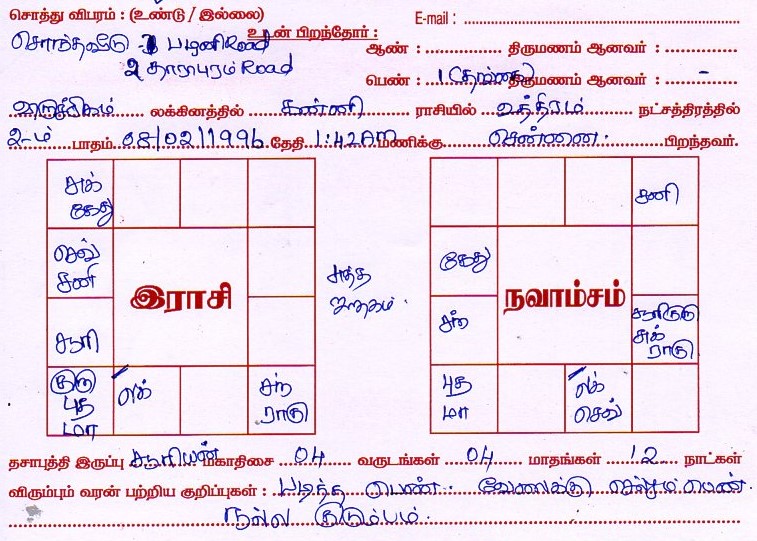 சொத்து விபரம் : (உண்டு / இல்லை) E-mail :
உடன் பிறந்தோர் :
சொந்தவீடு - 1 பழனி Road ஆண் : திருமணம் ஆனவர் :
2 தாராபுரம் Road
பெண் : 1 திருமணம் ஆனவர் : -
விருச்சிகம் லக்கினத்தில் கன்னி ராசியில் உத்திரம் நட்சத்திரத்தில்
2-ம் பாதம். 08/02/1996 தேதி 1:42AM மணிக்கு சென்னை. பிறந்தவர்.
சுக் கேது
செவ் சனி
சூரி
குரு புத மா
லக்
சந் ராகு
இராசி
சுத்த ஜாதகம்.
சனி
கேது
சந்
சூரி குரு சுக் ராகு
புத மா
லக் செவ்
நவாம்சம்
தசாபுத்தி இருப்பு சூரியன் மகாதிசை 04 வருடங்கள் 04 மாதங்கள் 12 நாட்கள்
விரும்பும் வரன் பற்றிய குறிப்புகள் : படித்த பெண். வேலைக்கு செல்லும் பெண்.
நல்ல குடும்பம்.